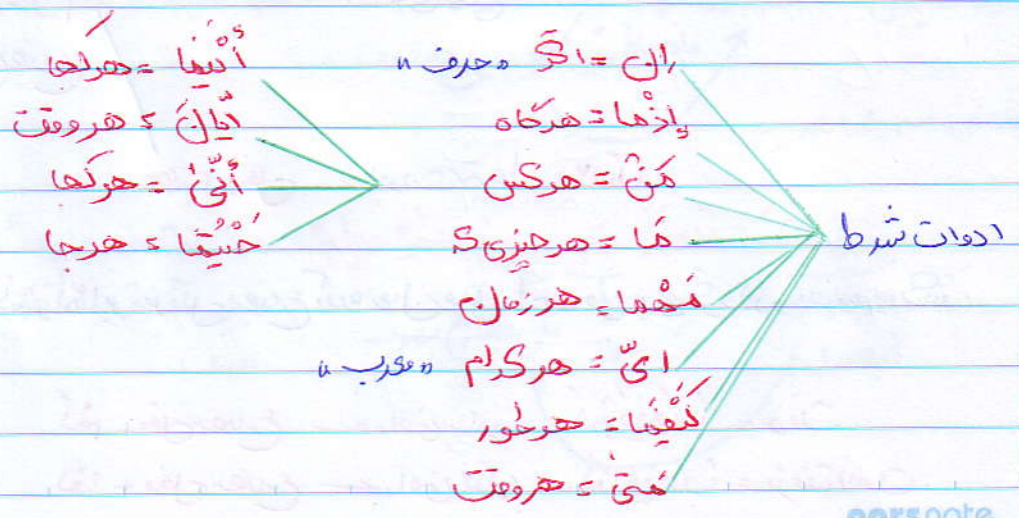 ادوات شرط
إن = اگر «حرف»
إذْما = هرگاه
مَنْ = هرکس
مَا = هر چیزی که
مَهْما = هر زمان
ایّ = هر کدام «معرب»
کَیْفَما = هر طور
مَتیٰ = هر وقت
أَیْنَما = هر کجا
أیّانَ = هر وقت
أَنّیٰ = هر کجا
حَیْثُما = هر جا
parsnote